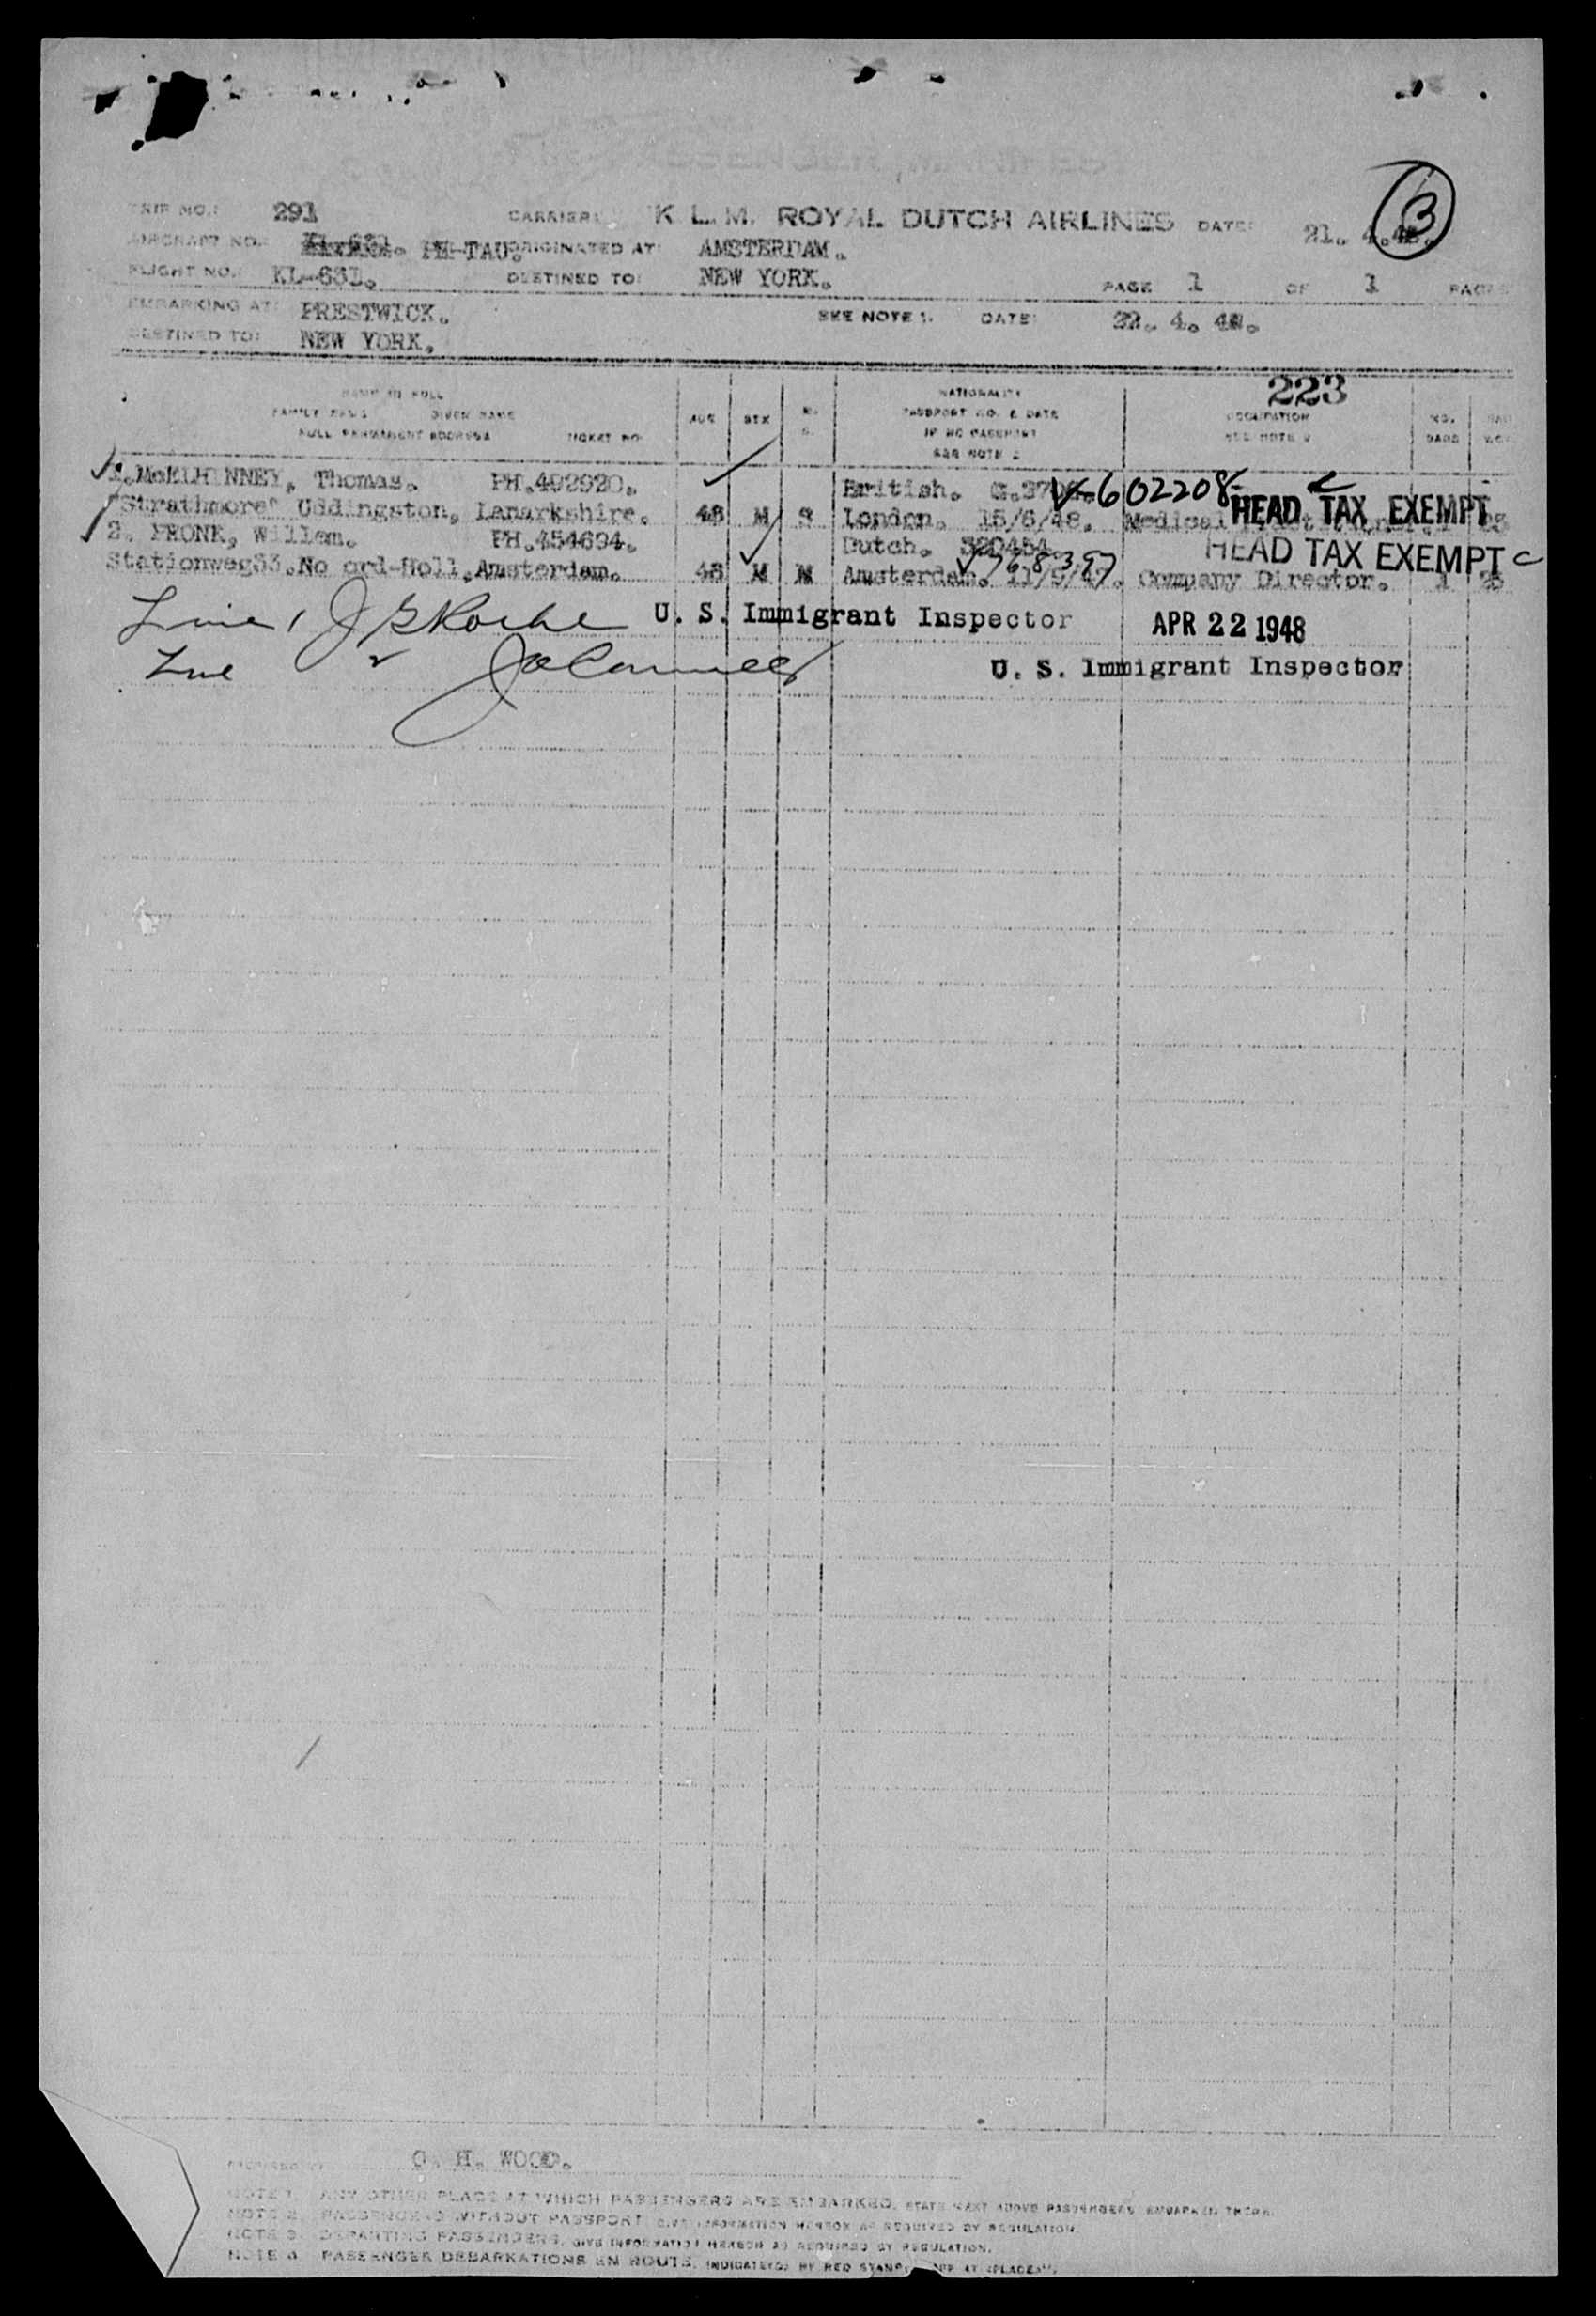 3
TRIP NO.: 291 CARRIER: K. L. M. ROYAL DUTCH AIRLINES DATE: 21. 4.48.
AIRCRAFT NO. PH-TAU. ORIGINATED AT: AMSTERDAM.
FLIGHT NO. KL-631. DESTINED TO: NEW YORK. PAGE 1 OF 1 PAGES
EMBARKING AT: PRESTWICK. SEE NOTE 1. DATE: 22. 4. 48.
DESTINED TO: NEW YORK.
223
NAME IN FULL NATIONALITY
FAMILY NAME GIVEN NAME AGE SEX M. PASSPORT NO. & DATE OCCUPATION NO.
FULL PERMANENT ADDRESS TICKET NO. S. IF NO PASSPORT SEE NOTE BAGS
SEE NOTE 2
1. McELHINNEY, Thomas. PH.492920. British. V-602208 HEAD TAX EXEMPT
"Strathmore" Uddingston, Lanarkshire. 48 M S London. 15/6/48. Medical
2. PRONK, Willem. PH.454694. Dutch. 320454. V768397 HEAD TAX EXEMPT
Stationweg33.No ord-Holl.Amsterdam. 48 M M Amsterdam. 11/9/47. Company Director. 1 25
Line 1 J Roche U. S. Immigrant Inspector APR 22 1948
Line 2 U. S. Immigrant Inspector
PREPARED BY O. H. WOOD.
NOTE 1. ANY OTHER PLACE AT WHICH PASSENGERS ARE EMBARKED, STATE NEXT ABOVE PASSENGERS EMBARKED THERE.
NOTE 2. PASSENGERS WITHOUT PASSPORT, GIVE INFORMATION HEREON AS REQUIRED BY REGULATION.
NOTE 3. DEPARTING PASSENGERS, GIVE INFORMATION HEREON AS REQUIRED BY REGULATION.
NOTE 4. PASSENGER DEBARKATIONS EN ROUTE, INDICATE(D) BY RED STAMP "OFF AT (PLACE)".